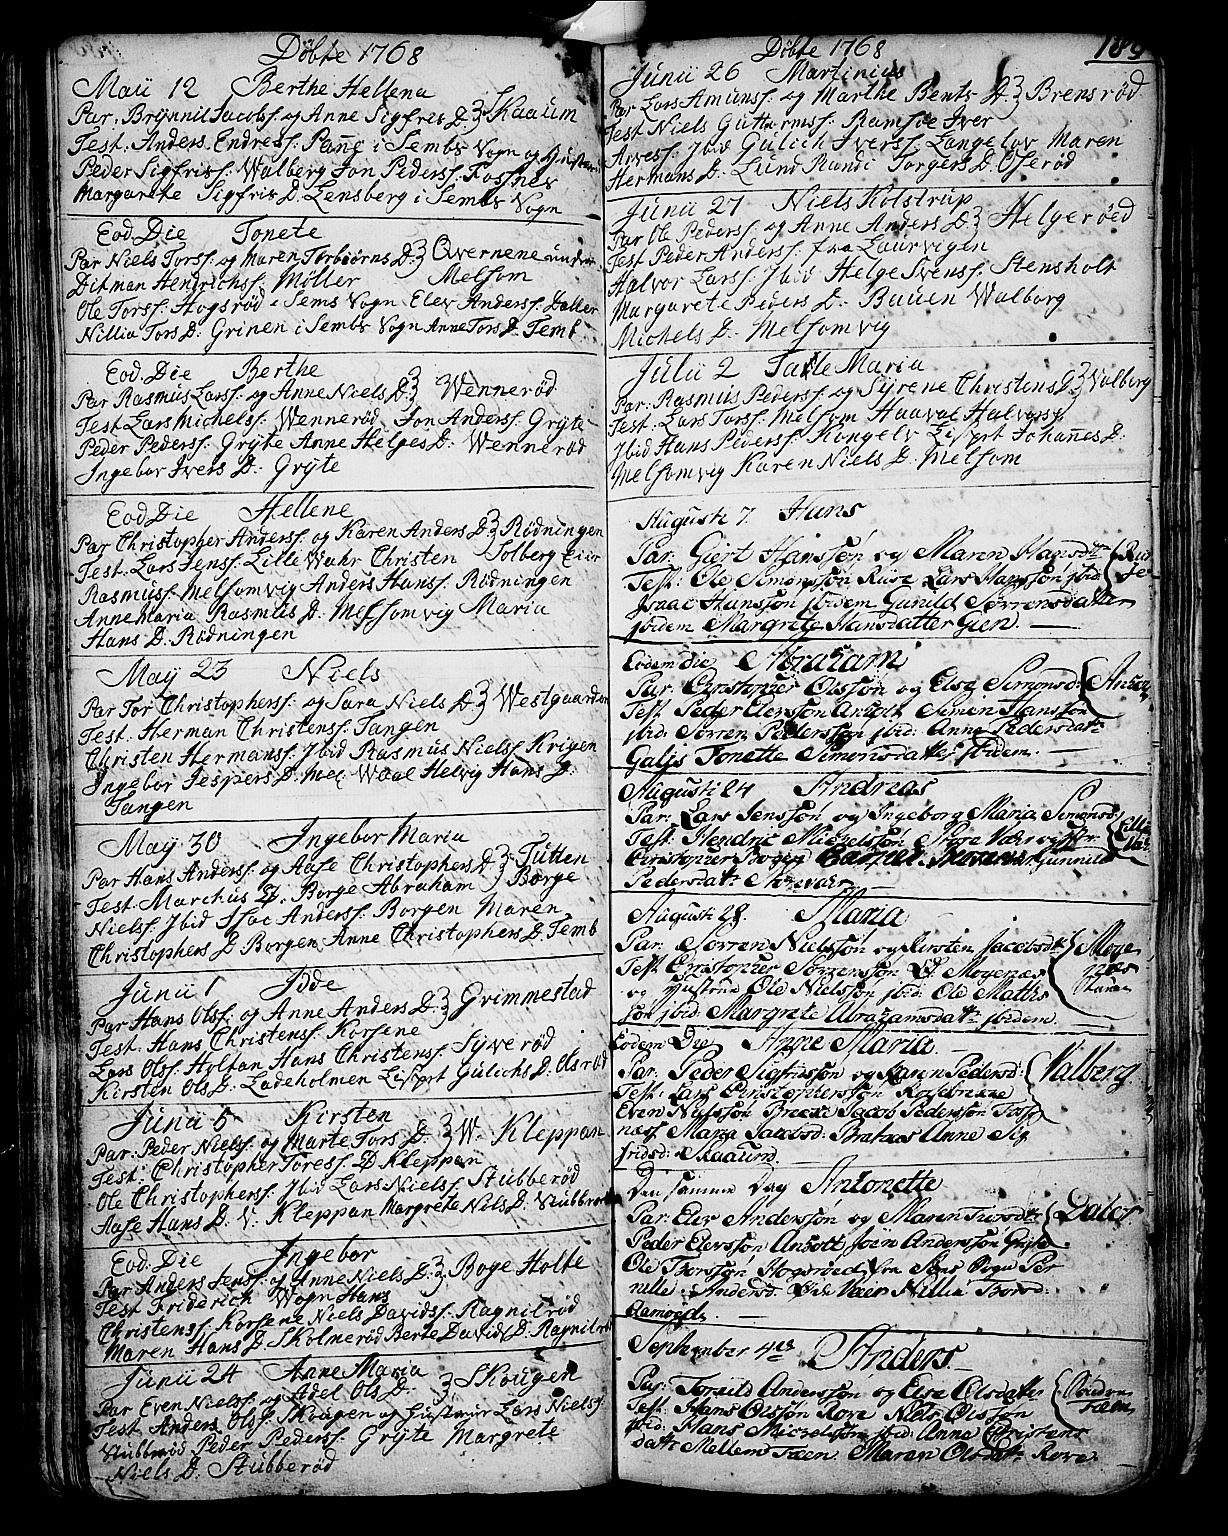 Döbte 1768
Maii 12 Berthe Hellena
Par. Brynnil Jacobs. og Anne Sigfris D. Skaaum
Test. Anders Endress. Pane i Sembs Vogn og Hustrue
Peder Sigfriss. Walberg Jon Pederss. Fossnes
Margarete Sigfris D. Lensberg i Sembs Vogn
Eod. Die Tonete
Par Niels Torss. og Maren Torbiørns D. Qvernene under
Ditman Hendrichs Möller Melsom
Ole Torss. Hogsrød i Sems Vogn Elev Anderss. Daller
Nillia Tors D. Grinen i Sembs Vogn Anne Tors D. Temb
Eod. Die Berthe
Par Rasmus Larss. og Anne Niels D. Wennerød
Test. Lars Michels. Wennerød Jon Anderss. Gryte
Peder Peders. Gryte Anne Helges D. Wennerød
Ingebor Ivers D. Gryte
Eod Die Hellene
Par Christopher Anderss. og Karen Anders D. Rødningen
Test. Lars Jenss. Lille Wahr Christen Solberg Eier
Rasmus. Melsomvig Anders Hanss. Rødningen
Anne Maria Rasmus D. Melsomvig Maria
Hans D. Rødningen
May 23 Niels
Par Tor Christophers. og Sara Niels D. Westgaarden
Test. Herman Christens. Tangen
Christen Hermans. Ibid Rasmus Niels. Krigen
Ingebor Jespers D. Mel: Waae Helvig Hans D.
Tangen
May 30 Ingebor Maria
Par Hans Anderss. og Aase Christophers D. Tutten
Test Marchus D. Borge Abraham Borge
Niels. Ibid Isac Anderss. Borgen Maren
Christophers D Borgen Anne Christophers D. Temb
Junii 1 Idde
Par Hans Olss. og Anne Anders D. Grimmestad
Test. Hans Christens. Korsene
Lars Olss. Holtan Hans Christens. Syverød
Kirsten Ols D. Ladeholmen Lisprt Gulichs D. Olsrød
Junii 5 Kirsten
Par. Peder Niels. og Marte Tors D. W. Kleppan
Test. Christopher Toress. D Kleppan
Ole Christophers. Ibid Lars Niels. Stubberød
Aase Hans D. V. Kleppan Margrete Niels D. Stubberød
Eod. Die Ingebor
Par Anders Jens. og Anne Niels D. Boge Holte
Test Friderich Wogn Hans
Christens. Korsene Niels Davids. Ragnilrød
Maren Hans D. Skolmerød Berte Davids D. Ragnilrød
Junii 24 Anne Maria
Par Even Niels. og Adel Ols D. Skougen
Test Anders Ols. Skougen og Hustrue Lars Niels.
Stubberød Peder Peders. Gryte Margrete
Niels D. Stubberød
Döbte 1768 189
Junii 26 Martinius
Par Lars Amunss. og Marthe Bents D. Brensrød
Test Niels Guttormss. Ramsøe Iver
Arvess. Ibid Gulich Ivers. Langelov Maren
Hermans D. Lund Randi Torgers D. Oserød
Junii 27 Niels Kolstrup
Par Ole Pederss. og Anne Anders D. Helgerøed
Test Peder Anderss. fra Laurvigen
Halvor Larss. Ibid Helge Svenss. Stensholt
Margarete Peders D. Bauen Walborg
Michels D. Melsomvig
Julii 2 Talle Maria
Par. Rasmus Pederss. og Syrene Christens D. Valberg
Test. Lars Torss. Melsom Haavae Halvorss.
Ibid Hans Pederss. Kongelv Lisprt Johanes D.
Melsomvig Karen Niels D. Melsom
Augusti 7. Hans
Par: Giert Hanssøn og Maren Hansdtr
Test: Ole Simonssøn Ruse Lars Hanssøn ibid
Isaac Hanssøn ibidem Gunild Sørrensdatter
ibidem Margrete Hansdatter Gien.
Eodem die Abraham
Par. Christopher Olssøn og Else Simonsd:
Test. Peder Elenssøn Ansott Simen Hanssøn
ibid: Sørren Pederssøn ibid: Anne Pedersdatr
Galis Tonette Simonsdatter ibidem.
Augusti 24 Andreas
Par. Lars Jenssøn og Ingeborg Maria Simonsd:
Test: Hendric Michelssøn
Christopher Gunnild
Pedersdatr
Augusti 28. Maria
Par. Sørren Nielssøn og Kirsten Jacobsdtr Moge
Test. Christopher Sørrenssøn D. Mogenæs næs
og Hustrue Ole Nielssøn ibid. Ole Mathis
søn ibid. Margrete Abrahamsdatr ibidem.
Eodem Die Anne Maria
Par. Peder Sigfrissøn og Karen Pedersd. Valberg
Test: Lars Christophersøn
Even Nielssøn Jacob Pederssøn Foss
næss Maria Jacobsd. Anne Sig
fridsd: Skaaum
Den samme Dag Antonette
Par. Elev Anderssøn og Maren Torsdtr Daler
Peder Elevssøn Ansott Joen Anderssøn Gryte.
Ole Thorssøn Hogsrøed fra Sems Vogn Per
nille Andersd. Nillia Thorsd.
Ramøedt.
September 4de Anders
Par: Torkild Anderssøn og Else Olsdatter
Test. Hans Olssøn Rove Niels Olssøn
ibid: Hans Michelssøn ibid. Anne Christens
datr Mellem Føen. Maren Olsdatr Rove.